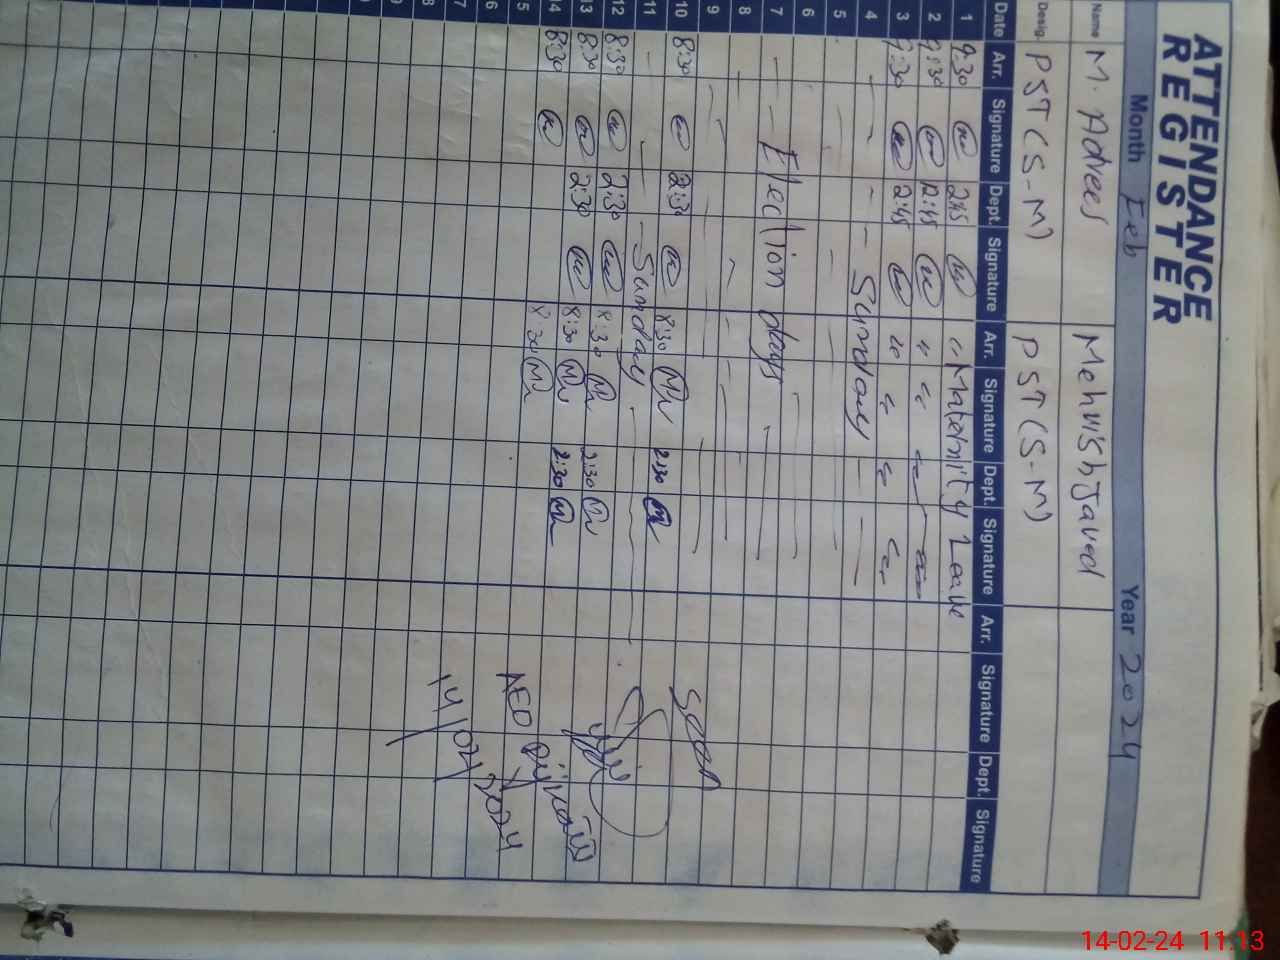 ATTENDANCE
REGISTER
Month Feb Year 2024
Name M. Adrees Mehwish Javed
Desig. PST (S-M) PST (S-M)
Date Arr. Signature Dept. Signature Arr. Signature Dept. Signature Arr. Signature Dept. Signature
1 9:30 2:45 " Maternity Leave
2 9:30 12:45 " "
3 9:30 2:45 " " " "
4 - - - Sunday - -
5
6
7 - - Election days
8
9
10 8:30 2:30 8:30 2:30
11 - - - Sunday
12 8:30 2:30 8:30 2:30
13 8:30 2:30 8:30 2:30
14 8:30 8:30
15
16
17
18
Seen
AEO
14/02/2024
14-02-24 11:13